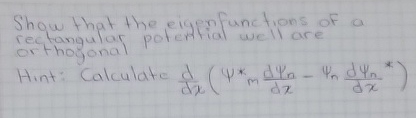 Show that the eigenfunctions of a
rectangular potential well are
orthogonal
Hint: Calculate d/dx (Ψ*ₘ dΨₙ/dx - Ψₙ dΨₙ*/dx)